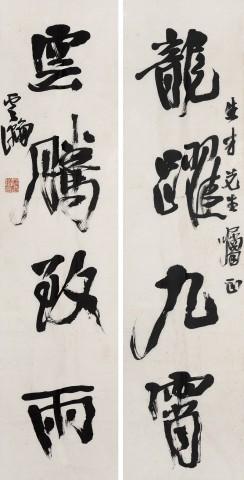 生才先生囑正
龍躍九霄
雲騰致雨